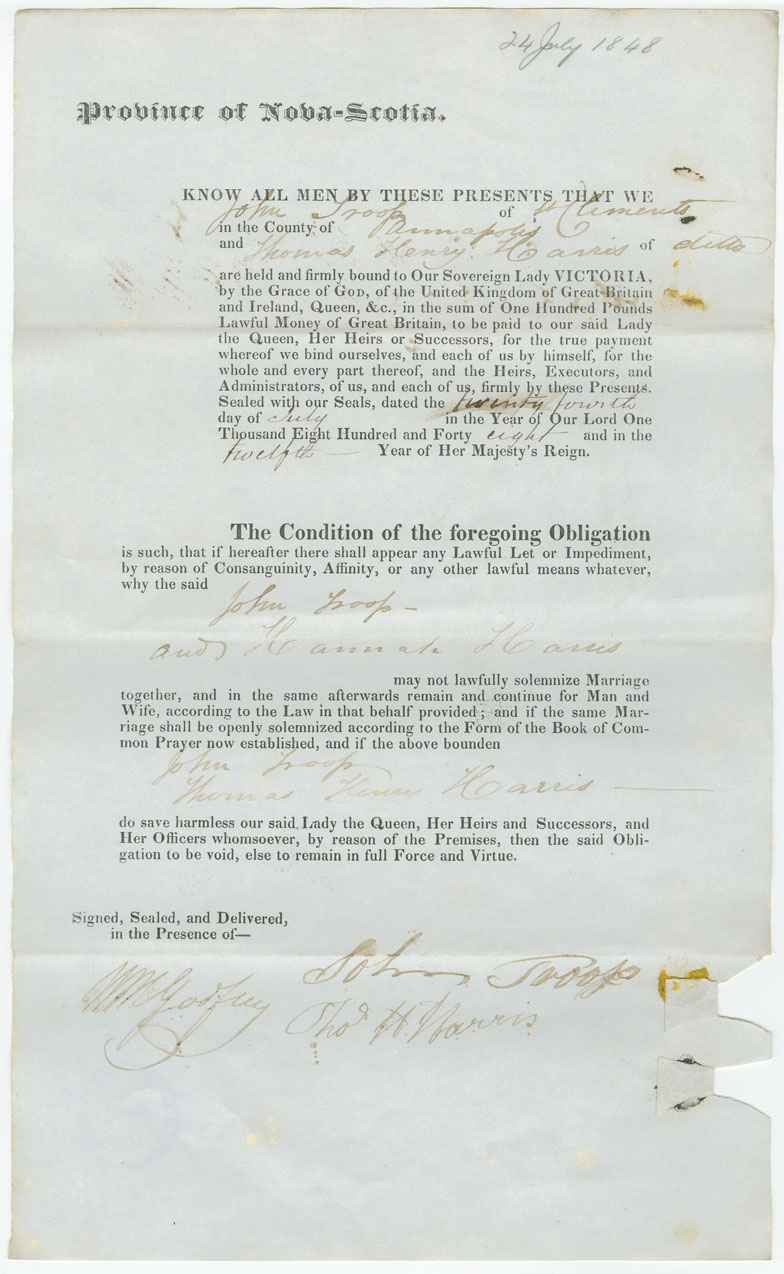 24 July 1848
Province of Nova-Scotia.
KNOW ALL MEN BY THESE PRESENTS THAT WE
John Troop of St Clements
in the County of Annapolis
and Thomas Henry Harris of ditto
are held and firmly bound to Our Sovereign Lady VICTORIA,
by the Grace of GOD, of the United Kingdom of Great Britain
and Ireland, Queen, &c., in the sum of One Hundred Pounds
Lawful Money of Great Britain, to be paid to our said Lady
the Queen, Her Heirs or Successors, for the true payment
whereof we bind ourselves, and each of us by himself, for the
whole and every part thereof, and the Heirs, Executors, and
Administrators, of us, and each of us, firmly by these Presents.
Sealed with our Seals, dated the twenty fourth
day of July in the Year of Our Lord One
Thousand Eight Hundred and Forty eight and in the
twelfth — Year of Her Majesty's Reign.
The Condition of the foregoing Obligation
is such, that if hereafter there shall appear any Lawful Let or Impediment,
by reason of Consanguinity, Affinity, or any other lawful means whatever,
why the said
John Troop —
and Hannah Harris
may not lawfully solemnize Marriage
together, and in the same afterwards remain and continue for Man and
Wife, according to the Law in that behalf provided; and if the same Mar-
riage shall be openly solemnized according to the Form of the Book of Com-
mon Prayer now established, and if the above bounden
John Troop
Thomas Henry Harris —
do save harmless our said Lady the Queen, Her Heirs and Successors, and
Her Officers whomsoever, by reason of the Premises, then the said Obli-
gation to be void, else to remain in full Force and Virtue.
Signed, Sealed, and Delivered,
in the Presence of—
John Troop
Godfrey
Thos H. Harris